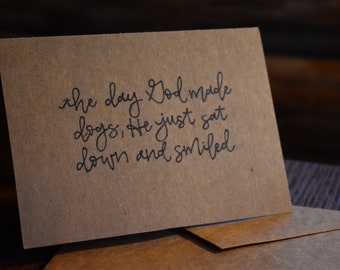 the day God made
dogs, He just sat
down and smiled